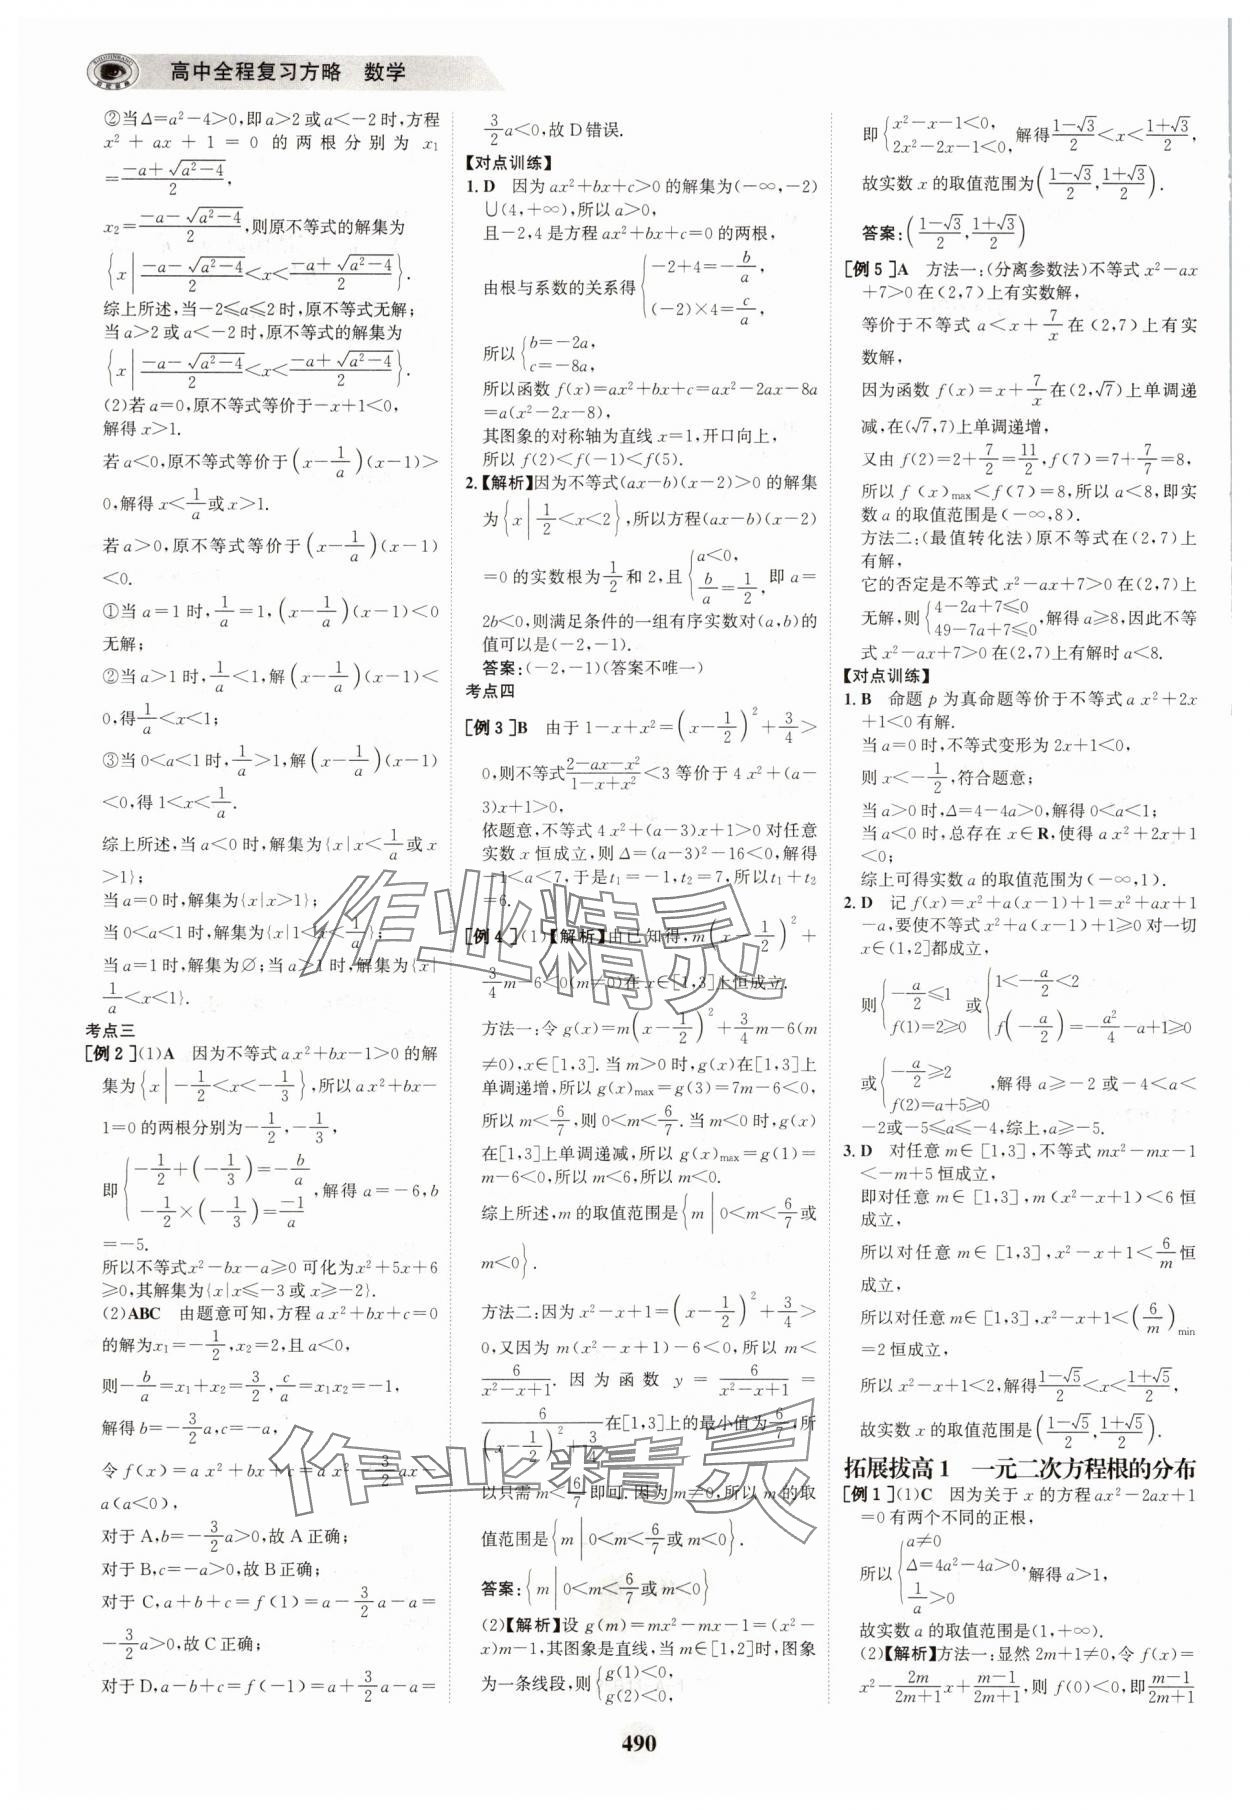 高中全程复习方略 数学
②当Δ=a²-4>0,即a>2或a<-2时,方程
x²+ax+1=0的两根分别为x₁
=(-a+√(a²-4))/2,
x₂=(-a-√(a²-4))/2,则原不等式的解集为
{x|(-a-√(a²-4))/2<x<(-a+√(a²-4))/2}.
综上所述,当-2≤a≤2时,原不等式无解;
当a>2或a<-2时,原不等式的解集为
{x|(-a-√(a²-4))/2<x<(-a+√(a²-4))/2}.
(2)若a=0,原不等式等价于-x+1<0,
解得x>1.
若a<0,原不等式等价于(x-1/a)(x-1)>
0,解得x<1/a或x>1.
若a>0,原不等式等价于(x-1/a)(x-1)
<0.
①当a=1时,1/a=1,(x-1/a)(x-1)<0
无解;
②当a>1时,1/a<1,解(x-1/a)(x-1)<
0,得1/a<x<1;
③当0<a<1时,1/a>1,解(x-1/a)(x-1)
<0,得1<x<1/a.
综上所述,当a<0时,解集为{x|x<1/a或x
>1};
当a=0时,解集为{x|x>1};
当0<a<1时,解集为{x|1<x<1/a};
当a=1时,解集为∅;当a>1时,解集为{x|
1/a<x<1}.
考点三
[例2](1)A 因为不等式ax²+bx-1>0的解
集为{x|-1/2<x<-1/3},所以ax²+bx-
1=0的两根分别为-1/2,-1/3,
即{-1/2+(-1/3)=-b/a
-1/2×(-1/3)=-1/a,解得a=-6,b
=-5.
所以不等式x²-bx-a≥0可化为x²+5x+6
≥0,其解集为{x|x≤-3或x≥-2}.
(2)ABC 由题意可知,方程ax²+bx+c=0
的解为x₁=-1/2,x₂=2,且a<0,
则-b/a=x₁+x₂=3/2,c/a=x₁x₂=-1,
解得b=-3/2a,c=-a,
令f(x)=ax²+bx+c=ax²-3/2ax-
a(a<0),
对于A,b=-3/2a>0,故A正确;
对于B,c=-a>0,故B正确;
对于C,a+b+c=f(1)=a-3/2a-a=
-3/2a>0,故C正确;
对于D,a-b+c=f(-1)=a+3/2a-a=
3/2a<0,故D错误.
【对点训练】
1.D 因为ax²+bx+c>0的解集为(-∞,-2)
∪(4,+∞),所以a>0,
且-2,4是方程ax²+bx+c=0的两根,
由根与系数的关系得{-2+4=-b/a,
(-2)×4=c/a,
所以{b=-2a,
c=-8a,
所以函数f(x)=ax²+bx+c=ax²-2ax-8a
=a(x²-2x-8),
其图象的对称轴为直线x=1,开口向上,
所以f(2)<f(-1)<f(5).
2.【解析】因为不等式(ax-b)(x-2)>0的解集
为{x|1/2<x<2},所以方程(ax-b)(x-2)
=0的实数根为1/2和2,且{a<0,
b/a=1/2,即a=
2b<0,则满足条件的一组有序实数对(a,b)的
值可以是(-2,-1).
答案:(-2,-1)(答案不唯一)
考点四
[例3]B 由于1-x+x²=(x-1/2)²+3/4>
0,则不等式(2-ax-x²)/(1-x+x²)<3等价于4x²+(a-
3)x+1>0,
依题意,不等式4x²+(a-3)x+1>0对任意
实数x恒成立,则Δ=(a-3)²-16<0,解得
-1<a<7,于是t₁=-1,t₂=7,所以t₁+t₂
=6.
[例4](1)【解析】由已知得,m(x-1/2)²+
3/4m-6<0(m≠0)在x∈[1,3]上恒成立.
方法一:令g(x)=m(x-1/2)²+3/4m-6(m
≠0),x∈[1,3].当m>0时,g(x)在[1,3]上
单调递增,所以g(x)max=g(3)=7m-6<0,
所以m<6/7,则0<m<6/7.当m<0时,g(x)
在[1,3]上单调递减,所以g(x)max=g(1)=
m-6<0,所以m<6,所以m<0.
综上所述,m的取值范围是{m|0<m<6/7或
m<0}.
方法二:因为x²-x+1=(x-1/2)²+3/4>
0,又因为m(x²-x+1)-6<0,所以m<
6/(x²-x+1).因为函数y=6/(x²-x+1)=
6/((x-1/2)²+3/4)在[1,3]上的最小值为6/7,所
以只需m<6/7即可.因为m≠0,所以m的取
值范围是{m|0<m<6/7或m<0}.
答案:{m|0<m<6/7或m<0}
(2)【解析】设g(m)=mx²-mx-1=(x²-
x)m-1,其图象是直线,当m∈[1,2]时,图象
为一条线段,则{g(1)<0,
g(2)<0,
即{x²-x-1<0,
2x²-2x-1<0,解得(1-√3)/2<x<(1+√3)/2,
故实数x的取值范围为((1-√3)/2,(1+√3)/2).
答案:((1-√3)/2,(1+√3)/2)
[例5]A 方法一:(分离参数法)不等式x²-ax
+7>0在(2,7)上有实数解,
等价于不等式a<x+7/x在(2,7)上有实
数解,
因为函数f(x)=x+7/x在(2,√7)上单调递
减,在(√7,7)上单调递增,
又由f(2)=2+7/2=11/2,f(7)=7+7/7=8,
所以f(x)max<f(7)=8,所以a<8,即实
数a的取值范围是(-∞,8).
方法二:(最值转化法)原不等式在(2,7)上
有解,
它的否定是不等式x²-ax+7>0在(2,7)上
无解,则{4-2a+7≤0
49-7a+7≤0,解得a≥8,因此不等
式x²-ax+7>0在(2,7)上有解时a<8.
【对点训练】
1.B 命题p为真命题等价于不等式ax²+2x
+1<0有解.
当a=0时,不等式变形为2x+1<0,
则x<-1/2,符合题意;
当a>0时,Δ=4-4a>0,解得0<a<1;
当a<0时,总存在x∈R,使得ax²+2x+1
<0;
综上可得实数a的取值范围为(-∞,1).
2.D 记f(x)=x²+a(x-1)+1=x²+ax+1
-a,要使不等式x²+a(x-1)+1≥0对一切
x∈(1,2]都成立,
则{-a/2≤1
f(1)=2≥0或{1<-a/2<2
f(-a/2)=-a²/4-a+1≥0
或{-a/2≥2
f(2)=a+5≥0,解得a≥-2或-4<a<
-2或-5≤a≤-4,综上,a≥-5.
3.D 对任意m∈[1,3],不等式mx²-mx-1
<-m+5恒成立,
即对任意m∈[1,3],m(x²-x+1)<6恒
成立,
所以对任意m∈[1,3],x²-x+1<6/m恒
成立,
所以对任意m∈[1,3],x²-x+1<(6/m)min
=2恒成立,
所以x²-x+1<2,解得(1-√5)/2<x<(1+√5)/2,
故实数x的取值范围是((1-√5)/2,(1+√5)/2).
拓展拔高1 一元二次方程根的分布
[例1](1)C 因为关于x的方程ax²-2ax+1
=0有两个不同的正根,
所以{a≠0
Δ=4a²-4a>0,
1/a>0解得a>1,
故实数a的取值范围是(1,+∞).
(2)【解析】方法一:显然2m+1≠0,令f(x)=
x²-2m/(2m+1)x+(m-1)/(2m+1),则f(0)<0,即(m-1)/(2m+1)
490
作业精灵
作业精灵